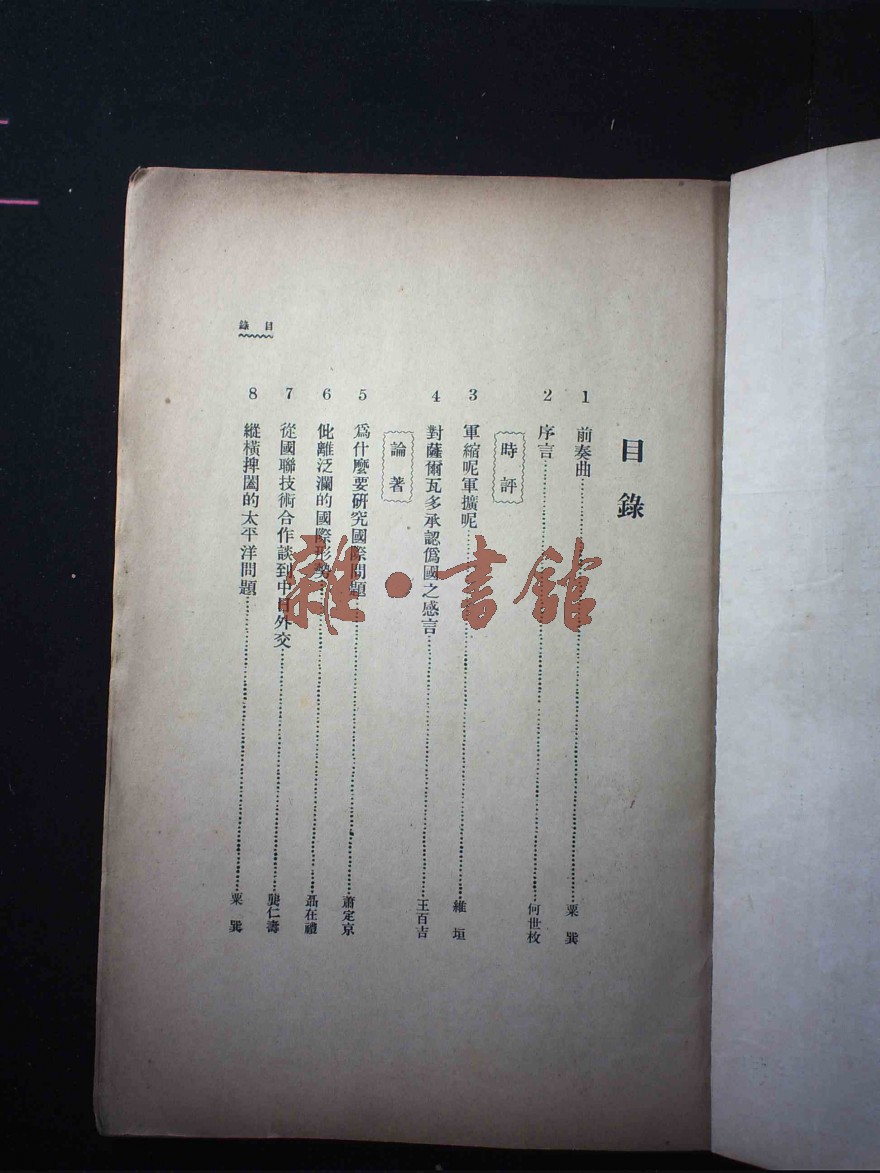 目錄
1 前奏曲 粟巽
2 序言 何世枚
時評
3 軍縮呢軍擴呢 維垣
4 對薩爾瓦多承認僞國之感言 王百吉
論著
5 爲什麼要硏究國際問題 蕭定京
6 仳離泛瀾的國際形勢 聶在禮
7 從國聯技術合作談到中日外交 龔仁壽
8 縱橫捭闔的太平洋問題 粟巽
目錄
雜·書館